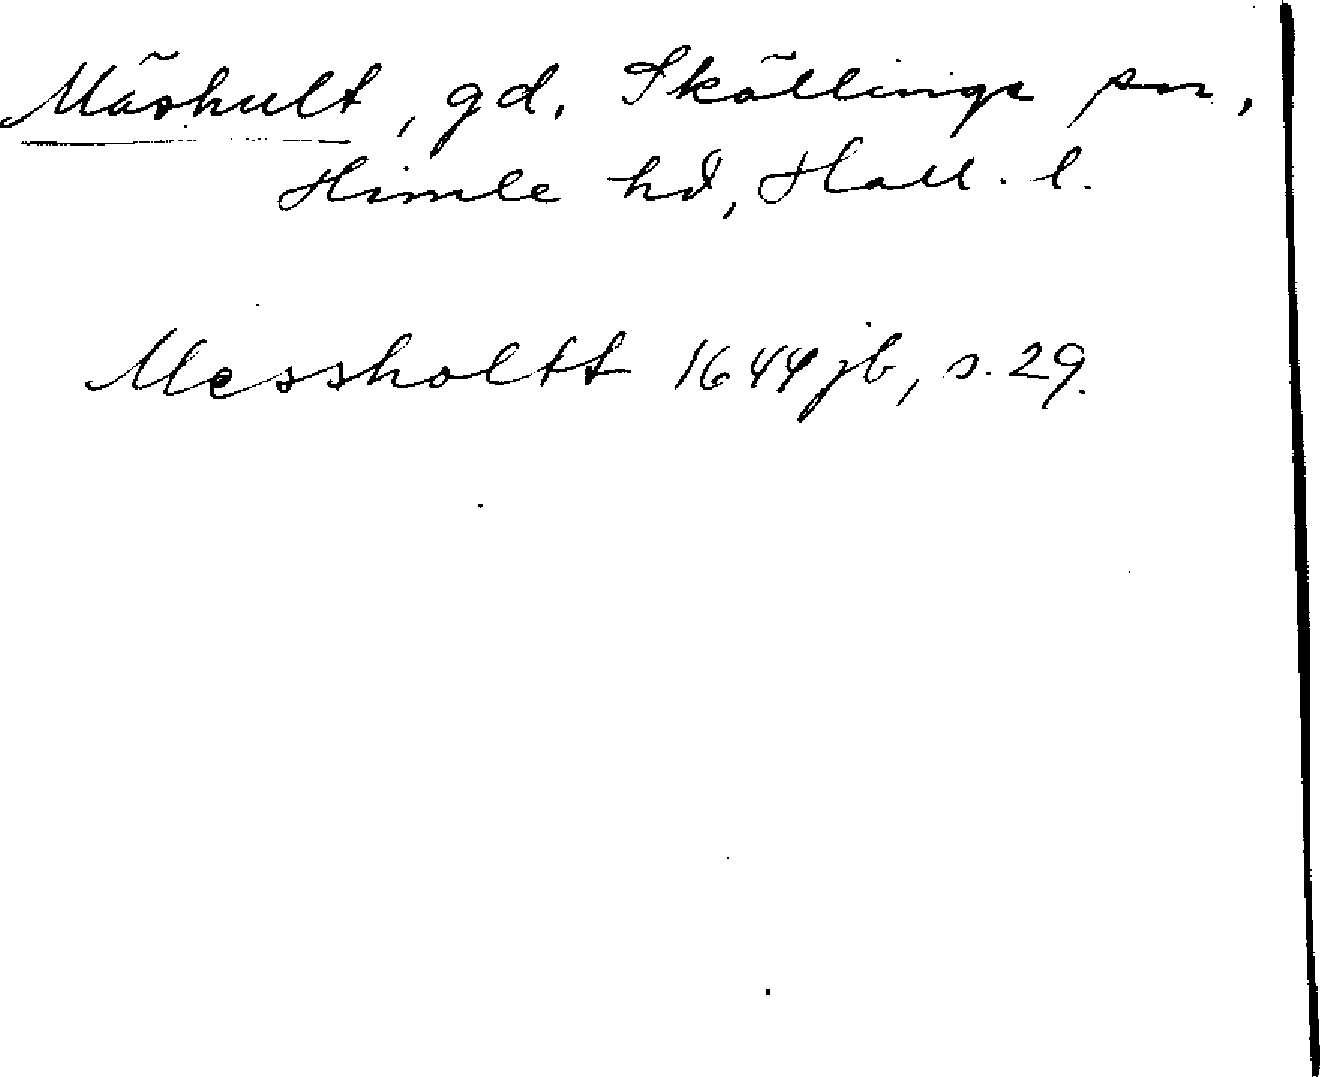 Mäshult, gd. Skällinge sn,
Himle hd, Hall. l.
Messholtt 1644 jb, s. 29.